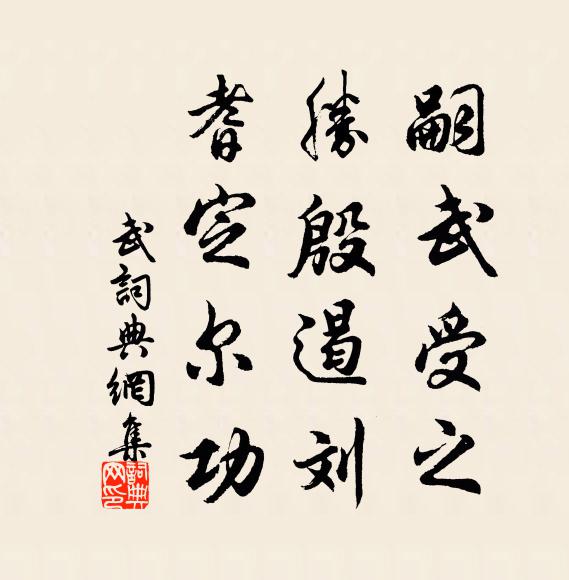 嗣武受之
勝殷遏刘
耆定尔功
武詞典網集
詞典网印